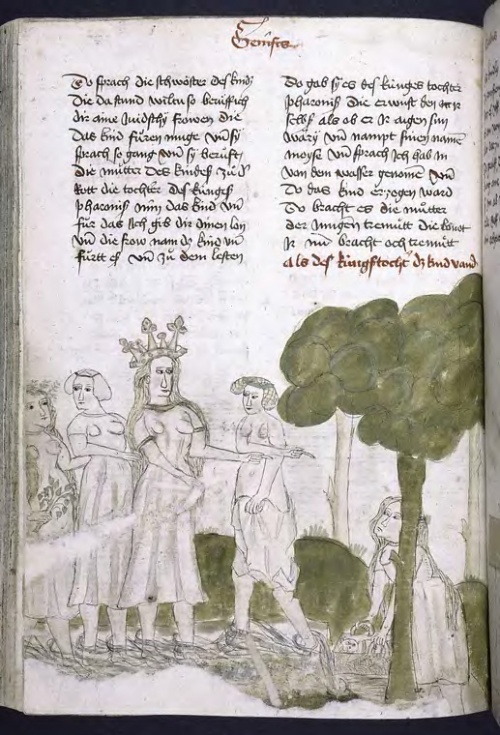 Genesis
Do sprach die schwöster des kindz
Die da stund wiltu so berüff ich
dir aine Juidschy frowen die
Das kind füren muge vnd sy
sprach so gang vnd sy berüft
die mütter des kindes zu der
Rett die tochter des künges
pharonis nim das kind vnd
für das Ich gib dir dinen lon
vnd die frow nam dz kind vnd
fürtt es vnd zu dem lesten
Do gab sy es des künges tochter
pharonis die erwunst
selbs als ob er Ir aigen sun
wäry vnd nampt sinen namē
moyse vnd sprach Ich hab in
von dem wasser genomē vnd
Do das kind erzogen ward
Do bracht es die mütter
der Jungen
Ir bracht och
als des küngs tochter dz kind vand